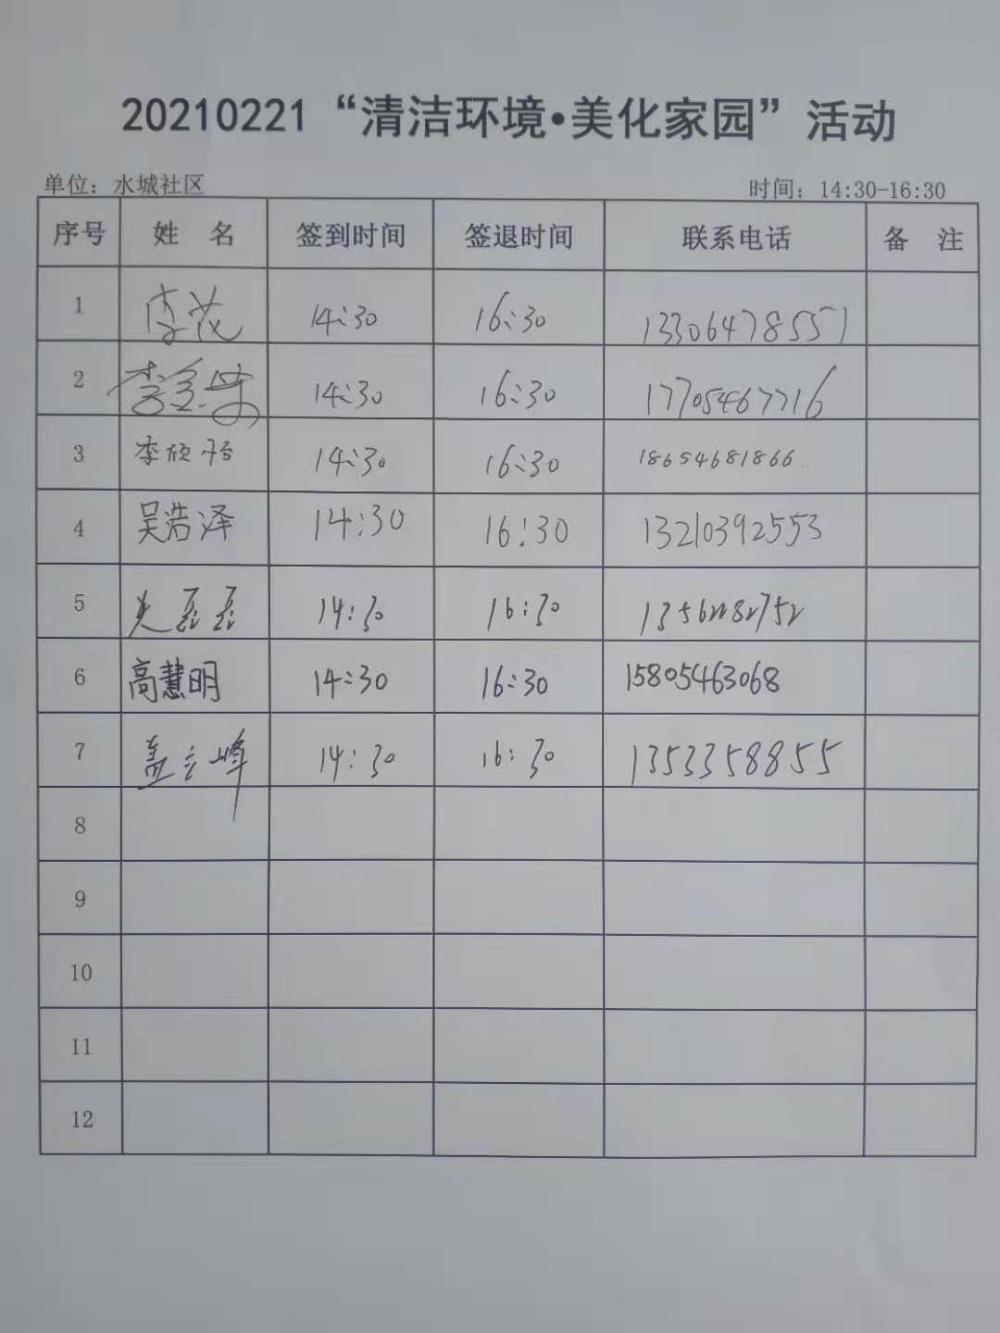 20210221“清洁环境•美化家园”活动
单位：水城社区 时间：14:30-16:30
序号 姓 名 签到时间 签退时间 联系电话 备 注
1 李花 14:30 16:30 13306478551
2 李 14:30 16:30 17705467716
3 李欣怡 14:30 16:30 18654681866
4 吴浩泽 14:30 16:30 13210392553
5 磊磊 14:30 16:30
6 高慧明 14:30 16:30 15805463068
7 盖立峰 14:30 16:30 1353358855
8
9
10
11
12